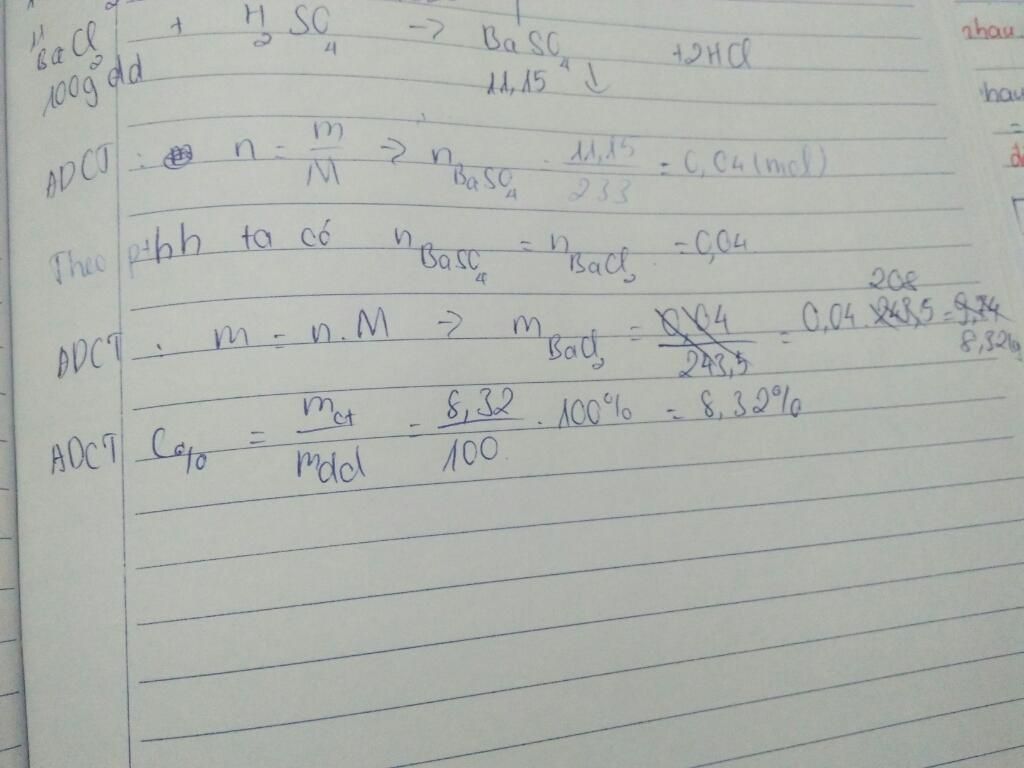 BaCl2 + H2SO4 -> BaSO4 ↓ + 2HCl
100g dd 11,15
ADCT : n = m/M => nBaSO4 = 11,15/233 = 0,04 (mol)
Theo pthh ta có nBaSO4 = nBaCl2 = 0,04
208
ADCT : m = n.M -> mBaCl2 = 0,04/243,5 = 0,04 . 243,5 = 9,74
8,32g
ADCT C% = mct/mdd = 8,32/100 . 100% = 8,32%
nhau